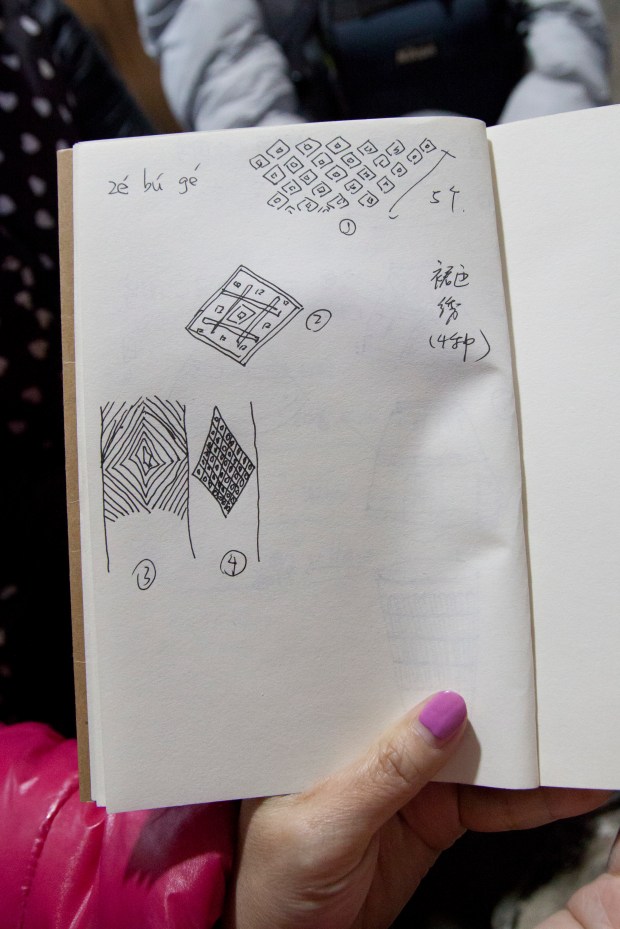 zé bú gé
5个.
①
裙边
绣
(4种)
②
③
④